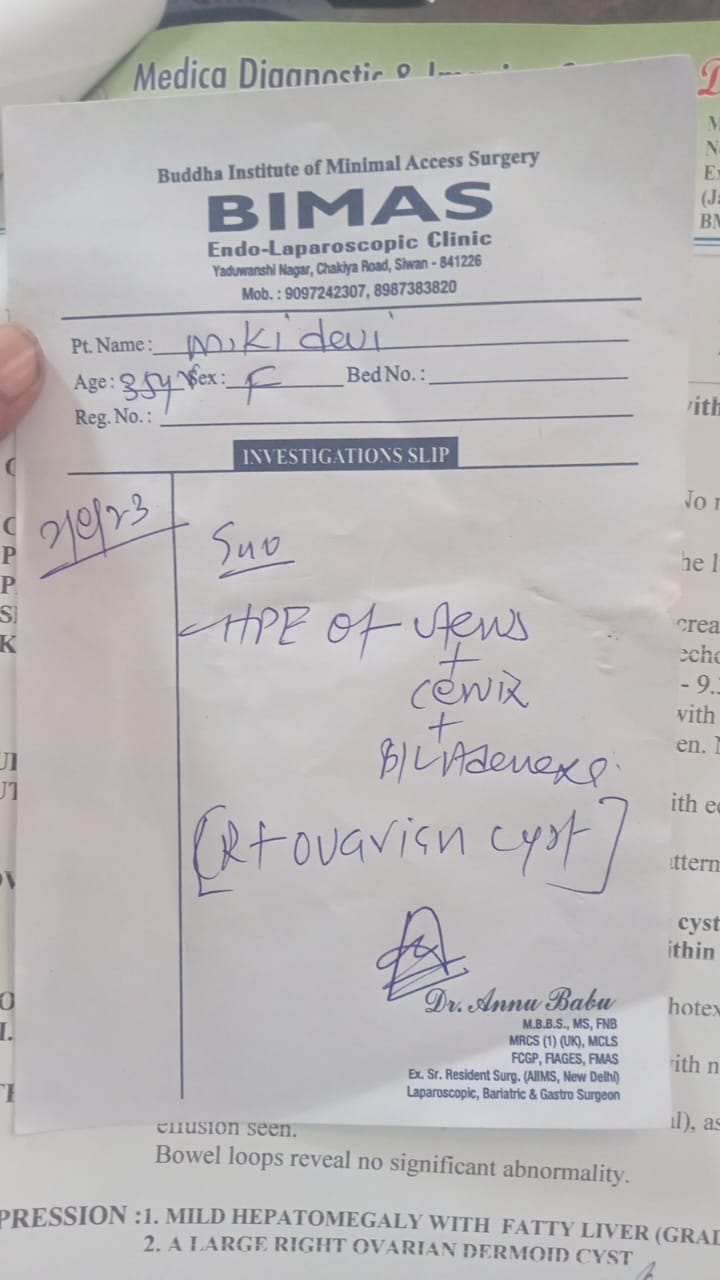 Medica Diagnostic &
Buddha Institute of Minimal Access Surgery
BIMAS
Endo-Laparoscopic Clinic
Yaduwanshi Nagar, Chakiya Road, Siwan - 841226
Mob. : 9097242307, 8987383820
Pt. Name : Miki devi
Age : 35y Sex : F Bed No. :
Reg. No. :
INVESTIGATIONS SLIP
HPE of uterus
+
cervix
+
B/L Adenexa
[Rt ovarian cyst]
Dr. Annu Babu
M.B.B.S., MS, FNB
MRCS (1) (UK), MCLS
FCGP, FIAGES, FMAS
Ex. Sr. Resident Surg. (AIIMS, New Delhi)
Laparoscopic, Bariatric & Gastro Surgeon
effusion seen.
Bowel loops reveal no significant abnormality.
PRESSION :1. MILD HEPATOMEGALY WITH FATTY LIVER (GRAD
2. A LARGE RIGHT OVARIAN DERMOID CYST